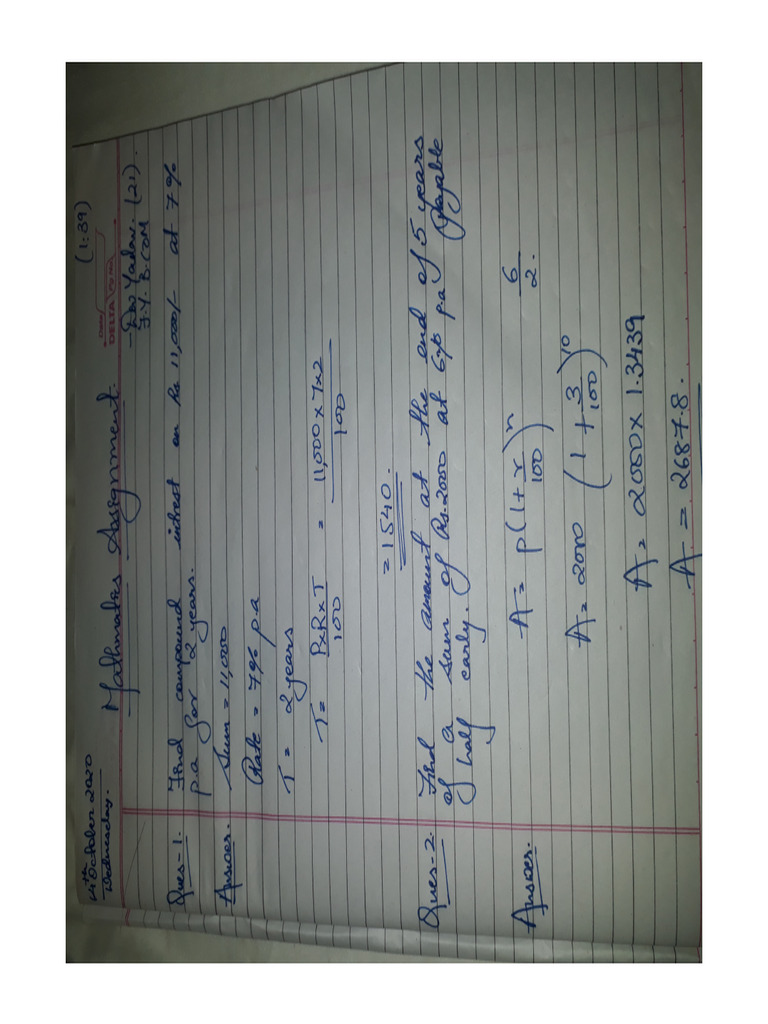 (1:39)
Date
DELTA Pg No.
14th October 2020
Wednesday.
Mathmatics Assignment.
- Dev Yadav. (21).
F.Y. B.COM
Ques-1. Find compound intrest on Rs 11,000/- at 7%
p.a for 2 years.
Answer. Sum = 11,000
Rate = 7% p.a
T = 2 years
I = PxRxT/100 = 11,000 x 7 x 2/100
= 1540.
Ques-2. Find the amount at the end of 5 years
of a sum of Rs. 2000 at 6% p.a payable
half early.
Answer. A = P(1+r/100)^n 6/2.
A = 2000 (1 + 3/100)^10
A = 2000 x 1.3439
A = 2687.8.